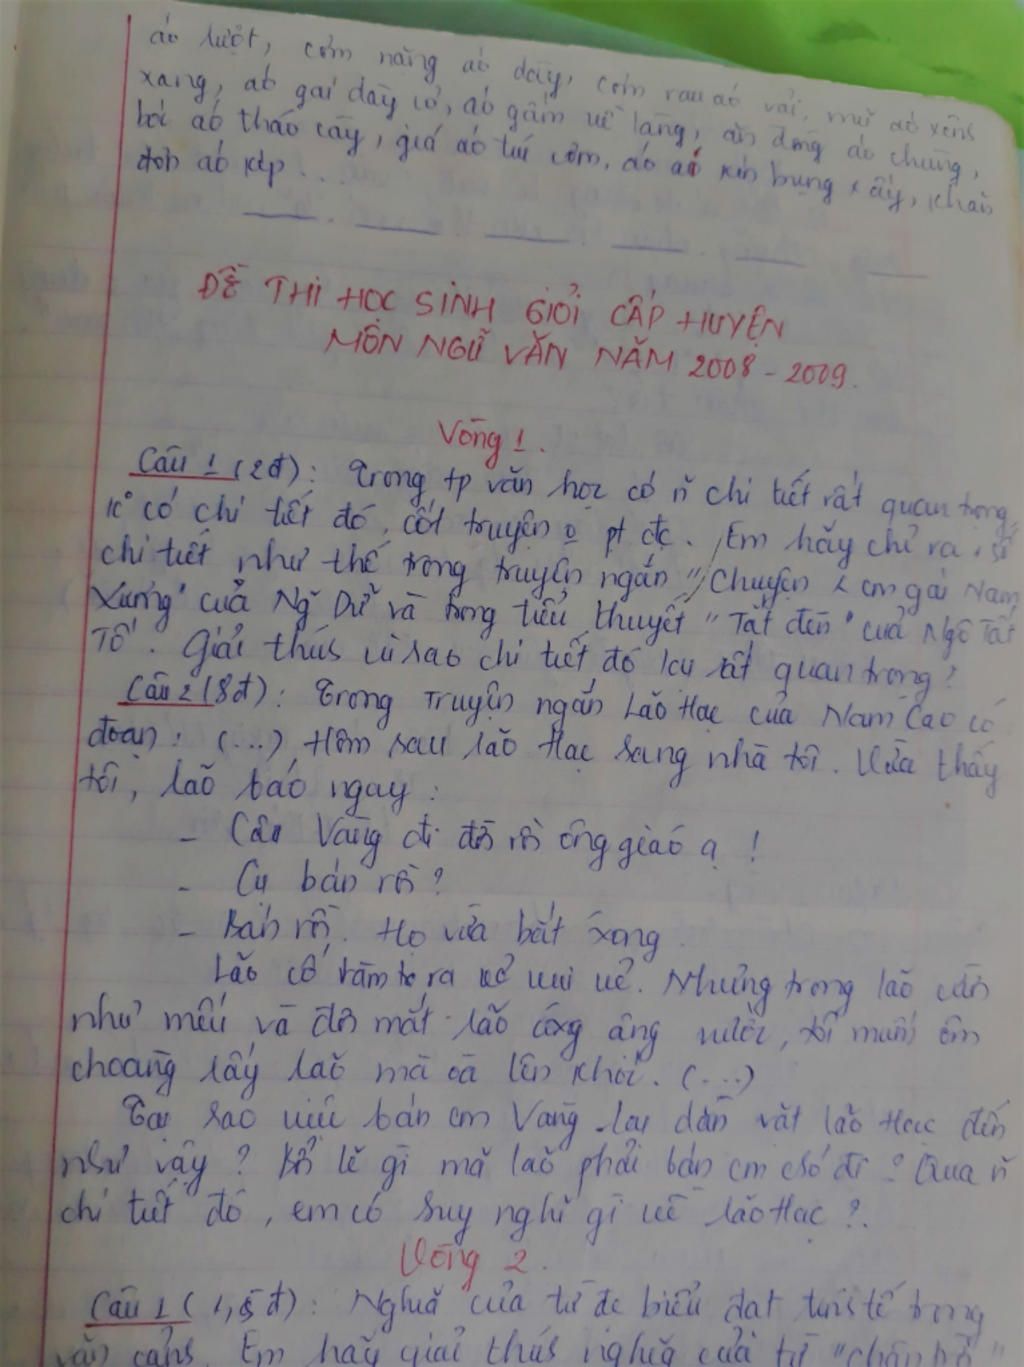 áo lượt, cơm nặng áo dày, cơm rau áo vải, mũ áo xênh
xang, áo gai dày cỏ, áo gấm về làng, ăn đong áo chung,
bói áo tháo cày, giá áo túi cơm, áo kín bụng, khăn
đơn áo kép...
ĐỀ THI HỌC SINH GIỎI CẤP HUYỆN
MÔN NGỮ VĂN NĂM 2008 - 2009.
Vòng 1.
Câu 1 (2đ): Trong tp văn học có n chi tiết rất quan trọng,
k° có chi tiết đó, cốt truyện o pt đc. Em hãy chỉ ra
chi tiết như thế trong truyện ngắn "Chuyện cm gái Nam
Xương" của Ng~ Dữ và trong tiểu thuyết "Tắt đèn" của Ngô Tất
Tố. Giải thích vì sao chi tiết đó lại rất quan trọng?
Câu 2 (8đ): Trong truyện ngắn Lão Hạc của Nam Cao có
đoạn: (...) Hôm sau lão Hạc sang nhà tôi. Vừa thấy
tôi, lão báo ngay:
- Cậu Vàng đi đời rồi ông giáo ạ!
- Cụ bán rồi?
- Bán rồi. Họ vừa bắt xong.
Lão cố làm ra vẻ vui vẻ. Nhưng trông lão cười
như mếu và đôi mắt lão ầng ậng nước, tôi muốn ôm
choàng lấy lão mà oà lên khóc. (...)
Tại sao việc bán cm Vàng lại dằn vặt lão Hạc đến
như vậy? Bởi lẽ gì mà lão phải bán cm chó đi? Qua n
chi tiết đó, em có suy nghĩ gì về lão Hạc?.
Vòng 2.
Câu 1 (1,5đ): Nghĩa của từ đc biểu đạt tinh tế trong
văn cảnh. Em hãy giải thích nghĩa của từ "chân